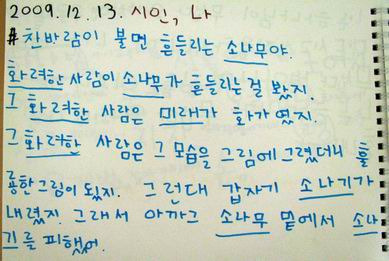 2009.12.13. 시인, 나
# 찬바람이 불면 흔들리는 소나무야.
화려한 사람이 소나무가 흔들리는걸 봤지.
그 화려한 사람은 미래가 화가 였지.
그 화려한 사람은 그 모습을 그림에 그렸더니 훌
륭한그림이 됬지. 그런대 갑자기 소나기가
내렸지 그래서 아까그 소나무 밑에서 소나
기를 피했어.